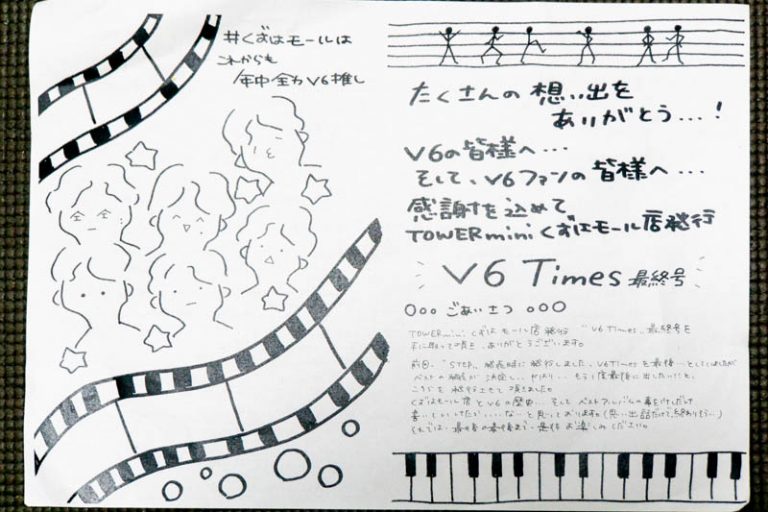 #くずはモールは
これからも
年中全力V6推し
たくさんの想い出を
ありがとう…！
V6の皆様へ…
そして、V6ファンの皆様へ…
感謝を込めて
TOWERmini くずはモール店発行
V6 Times 最終号
○○○ ごあいさつ ○○○
TOWERmini くずはモール店発行 "V6 Times" 最終号を
手に取って頂き、ありがとうございます。
前回、「STEP」発売時に発行しました、V6Timesを最後…としていましたが
ベストの発売が決定し… やはり… もう一度最後に出したい!と、
こちらを発行させて頂きました。
くずはモール店とV6の歴史… そして ベストアルバムの事をすこしだけ
書いていけたらいいな…と思っております。(思い出話だけで終わりそう…)
それでは、最後の最後まで、是非お楽しみください。